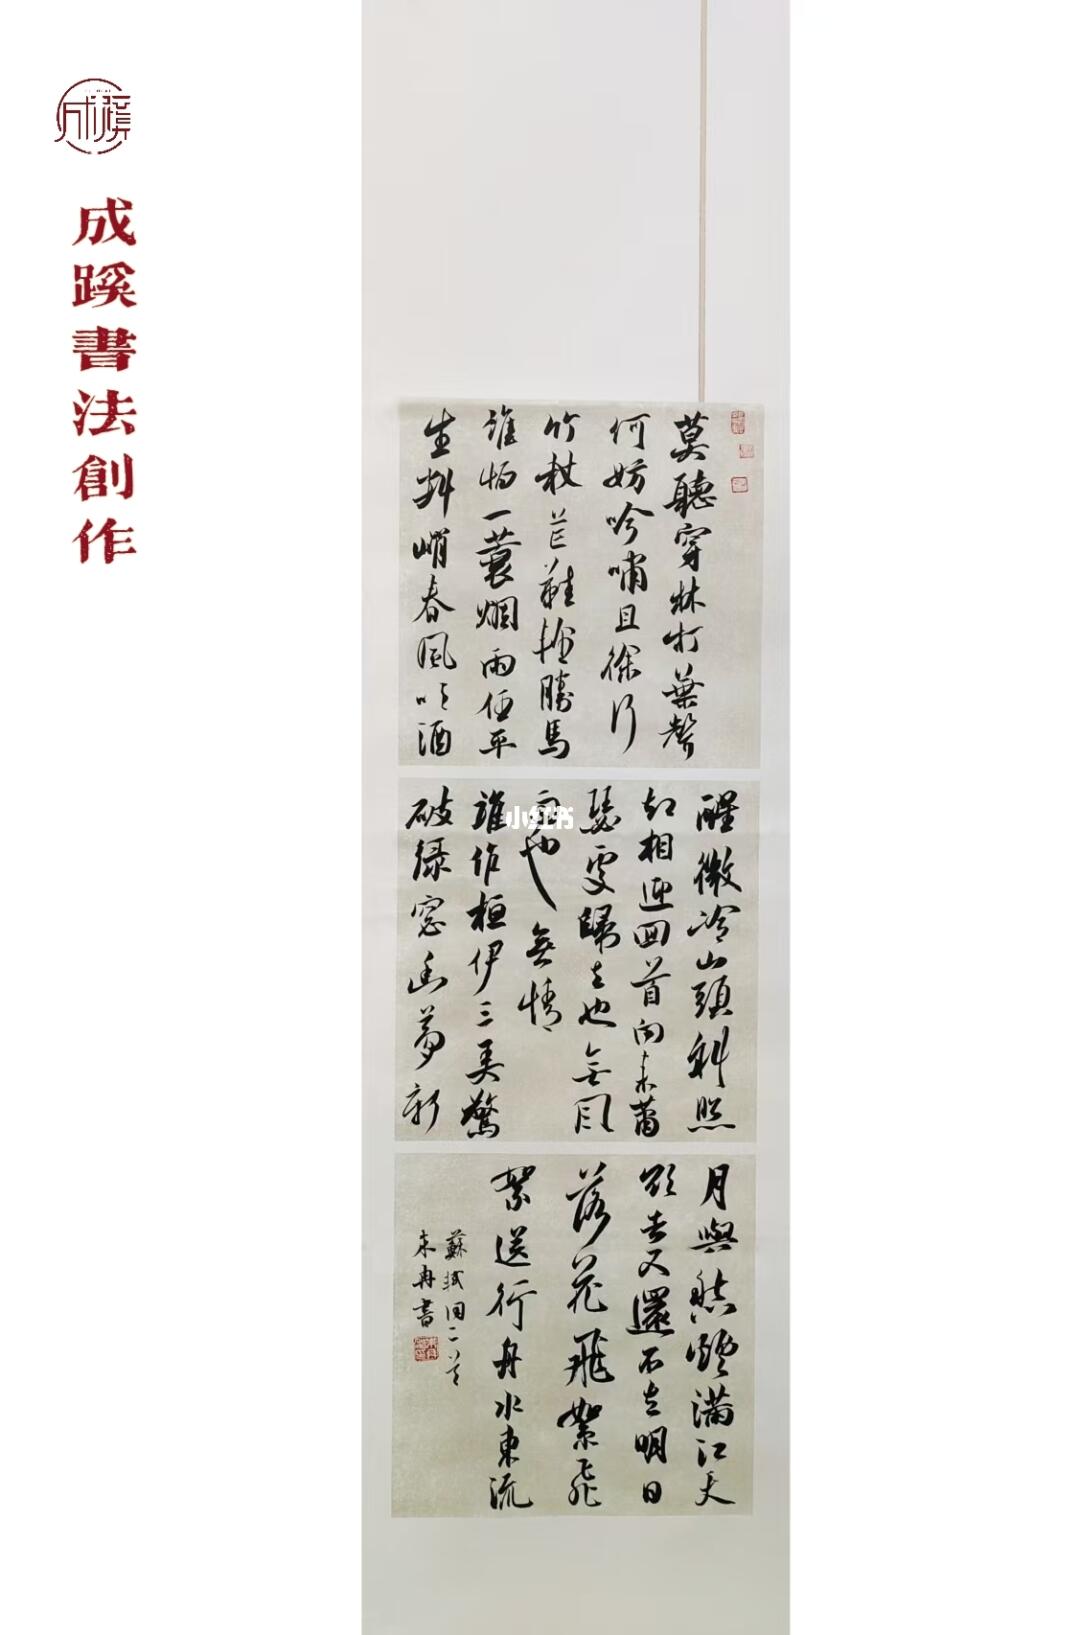 成蹊
成蹊書法創作
莫聽穿林打葉聲
何妨吟嘯且徐行
竹杖芒鞋輕勝馬
誰怕一蓑烟雨任平
生料峭春風吹酒
醒微冷山頭斜照
却相迎回首向來蕭
瑟處歸去也無風
雨也無情
誰作桓伊三弄驚
破綠窗幽夢新
月與愁煙滿江天
欲去又還不去明日
落花飛絮飛
絮送行舟水東流
蘇軾詞二首
冉書
小红书